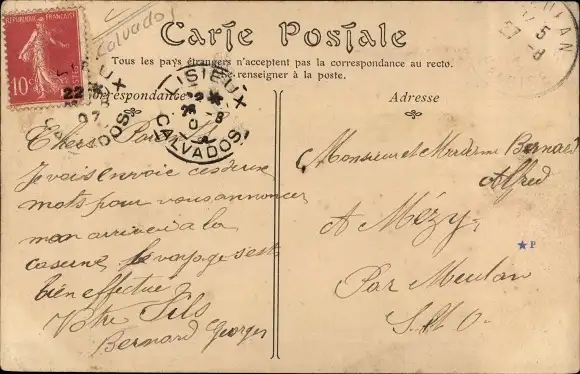 Calvados
RÉPUBLIQUE FRANÇAISE
10c
Carte Postale
Tous les pays étrangers n'acceptent pas la correspondance au recto.
renseigner à la poste.
Correspondance
Adresse
LISIEUX
CALVADOS
22 *
07
Chers Parents
Je vous envoie ces deux
mots pour vous annoncer
mon arriveé a la
caserne le voyage s'est
bien effectué
Votre Fils
Bernard Georges
Monsieur et Madame Bernard
Alfred
A Mézy
Par Meulan
S. et O.
P